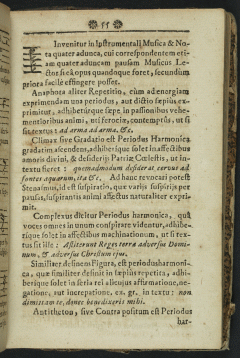 55
Invenitur in Instrumentali Musica & No-
ta quater adunca, cui correspondentem eti-
am quater aduncam pausam Musicus Le-
ctor si ei opus quandoque foret, secundum
priora facile effingere posset.
Anaphora aliter Repetitio, cùm ad energiam
exprimendam una periodus, aut dictio sæpius ex-
primitur, adhibetúrque sæpe in passionibus ve-
mentioribus animi, vel ferociæ, contemptus, ut si
sit textus: ad arma ad arma, &c.
Climax sive Gradatio est Periodus Harmonica
gradatim ascendens, adhibetúrque solet in affectibus
amoris divini, & desiderij Patriæ Cœlestis, ut in
textu fieret: quemadmodum desiderat cervus ad
fontes aquarum, ita &c. Ad hanc revocari potest
Stenasmus, id est suspiratio, quæ varijs suspirijs per
pausas, suspirantis animi affectus naturaliter expri-
mit.
Complexus dicitur Periodus harmonica, quâ
voces omnes in unum conspirare videntur, adhibe-
túrque solet in affectibus machinationum, ut si tex-
tus sit ille: Astiterunt Reges terræ adversus Domi-
num, & adversus Christum ejus.
Similiter desinens Figura, est periodus harmoni-
ca, quæ similiter desinit in sæpius repetita, adhi-
betúrque solet in seria rei alicujus affirmatione, ne-
gatione, aut increpatione, ex. gr. in textu: non
dimittam te, donec benedixeris mihi.
Antitheton, sive Contrapositum est Periodus
har-